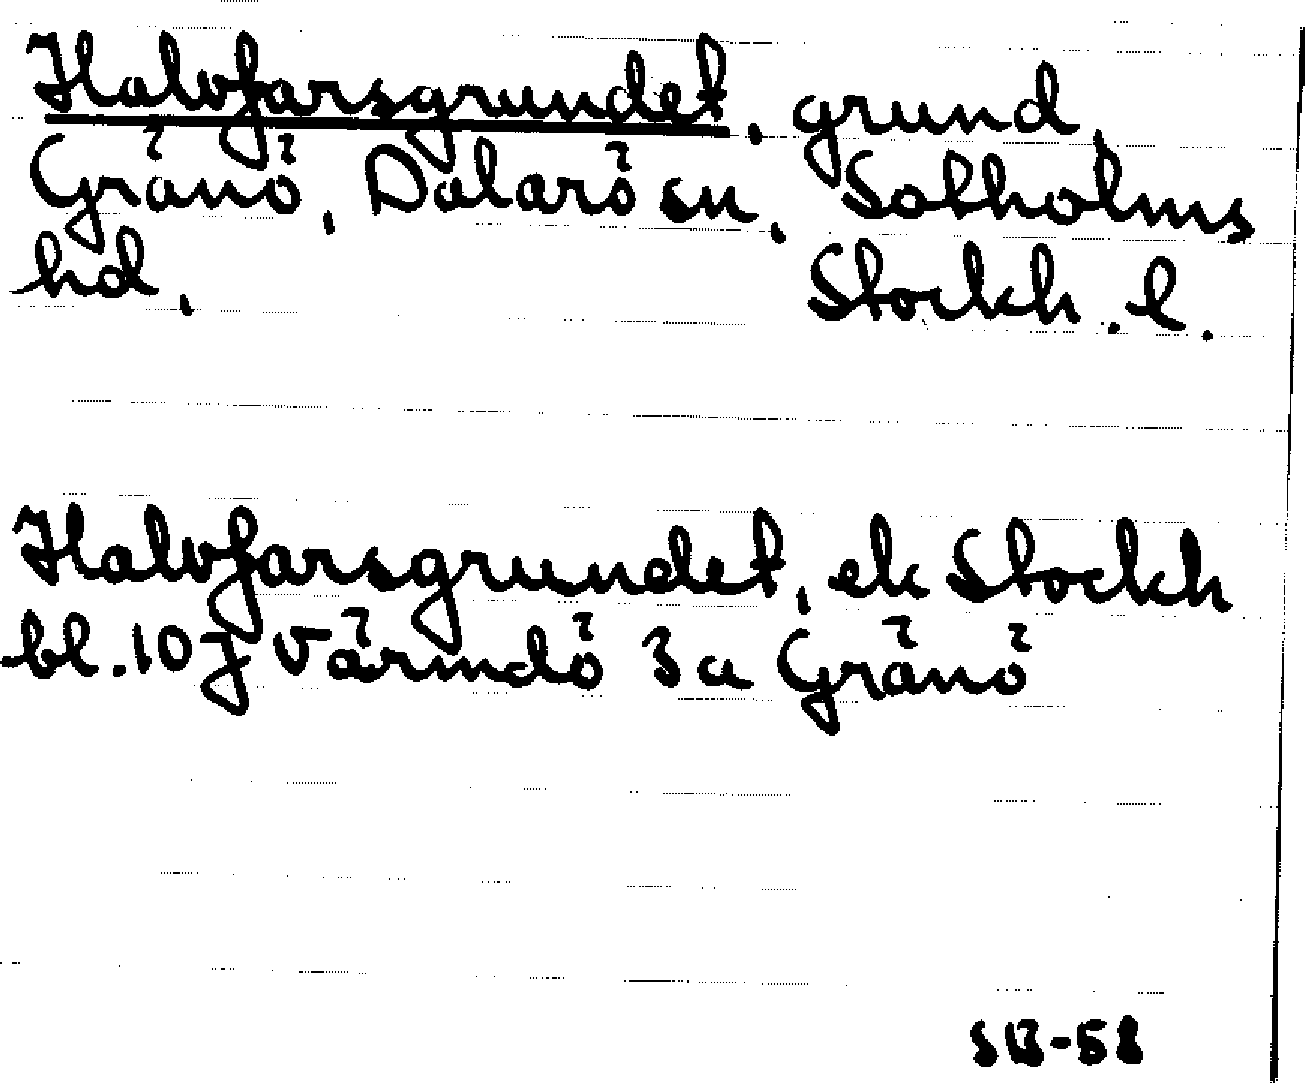 Halvfarsgrundet, grund,
Gränö, Dalarö sn, Sotholms
hd, Stockh. l.
Halvfarsgrundet, ek Stockh
bl. 10 J Värmdö 3a Gränö
SB-58